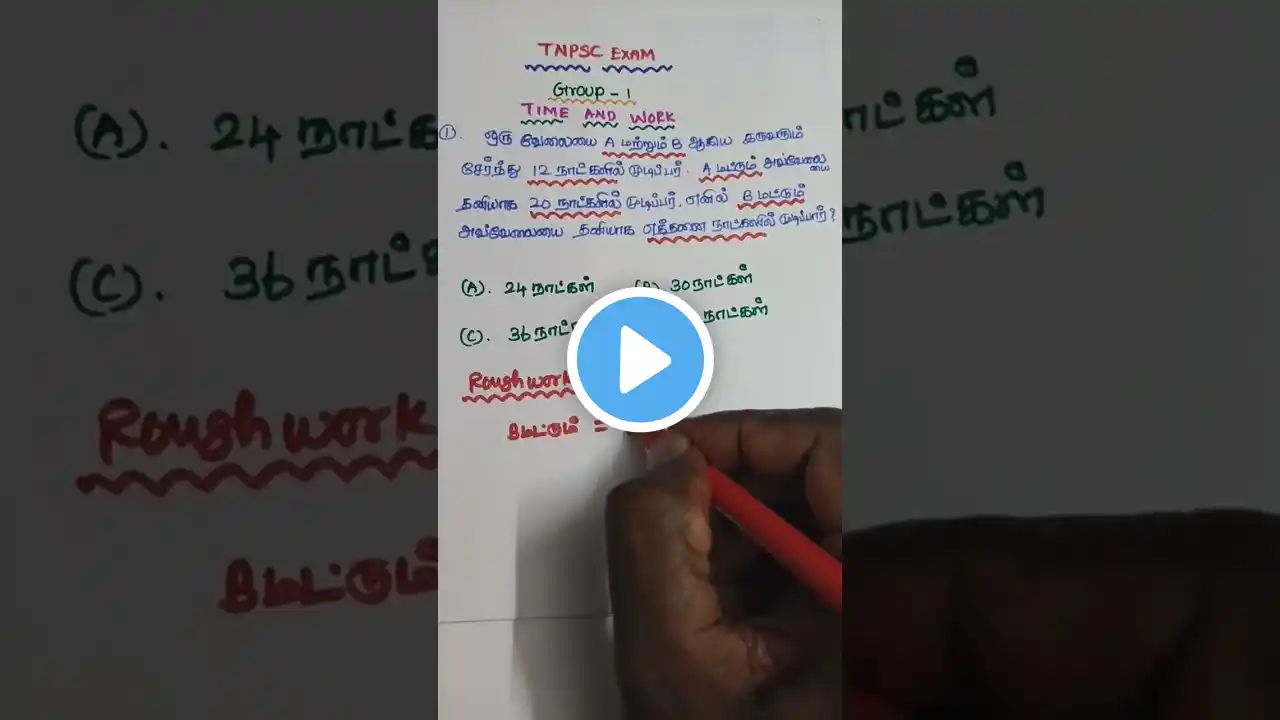 TNPSC EXAM
Group - 1
TIME AND WORK
①. ஒரு வேலையை A மற்றும் B ஆகிய இருவரும்
சேர்ந்து 12 நாட்களில் முடிப்பர். A மட்டும் அவ்வேலையை
தனியாக 20 நாட்களில் முடிப்பர். எனில் B மட்டும்
அவ்வேலையை தனியாக எத்தனை நாட்களில் முடிப்பார்?
(A). 24 நாட்கள் 30 நாட்கள்
(C). 36 நாட் நாட்கள்
Rough work
B மட்டும் =